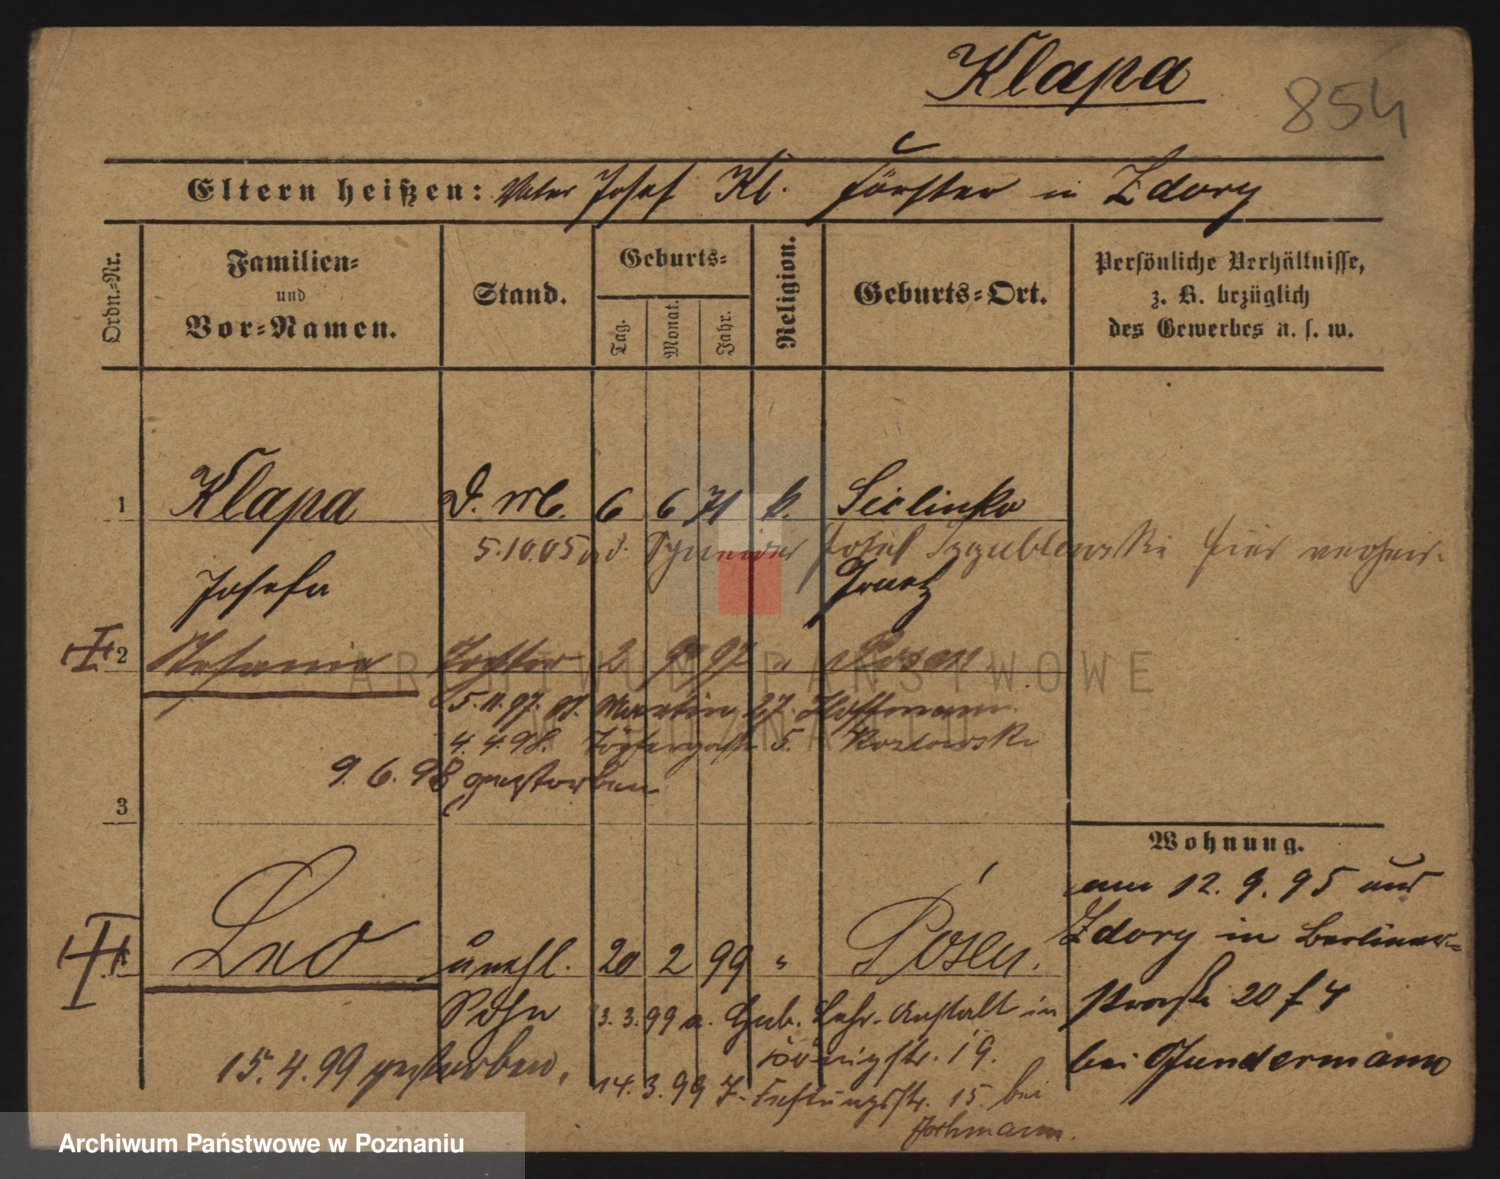 Klapa
854
Eltern heißen: Vater Josef Kl. Förster in Zdory
Ordn.-Nr.
Familien-
und
Vor-Namen.
Stand.
Geburts-
Tag.
Monat.
Jahr.
Religion.
Geburts-Ort.
Persönliche Verhältnisse,
z. B. bezüglich
des Gewerbes u. s. w.
1 Klapa D. M. 6 6 71 k. Sielinko
5.10.05 Josef hier
Josefa Graetz
2 Stefanie Tochter 2 9 97 " Posen
5.11.97. Martin 27. Hoffmann
4.4.98. Töpfergasse 5. Kozlowski
9.6.98 gestorben
3
Wohnung.
am 12.9.95 aus
Zdory in Berliner-
strasse 20 f 4
bei Gundermann
Leo unehl. 20 2 99 " Posen.
Sohn 3.3.99 a. Heb. Lehr-Anstalt in
Königstr. 19.
15.4.99 gestorben.
14.3.99 Festungsstr. 15. bei
ARCHIWUM PAŃSTWOWE
W POZNANIU
Archiwum Państwowe w Poznaniu